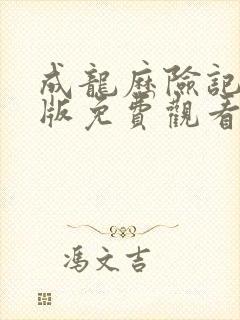 成龍歷險記
版免費觀看
馮文吉